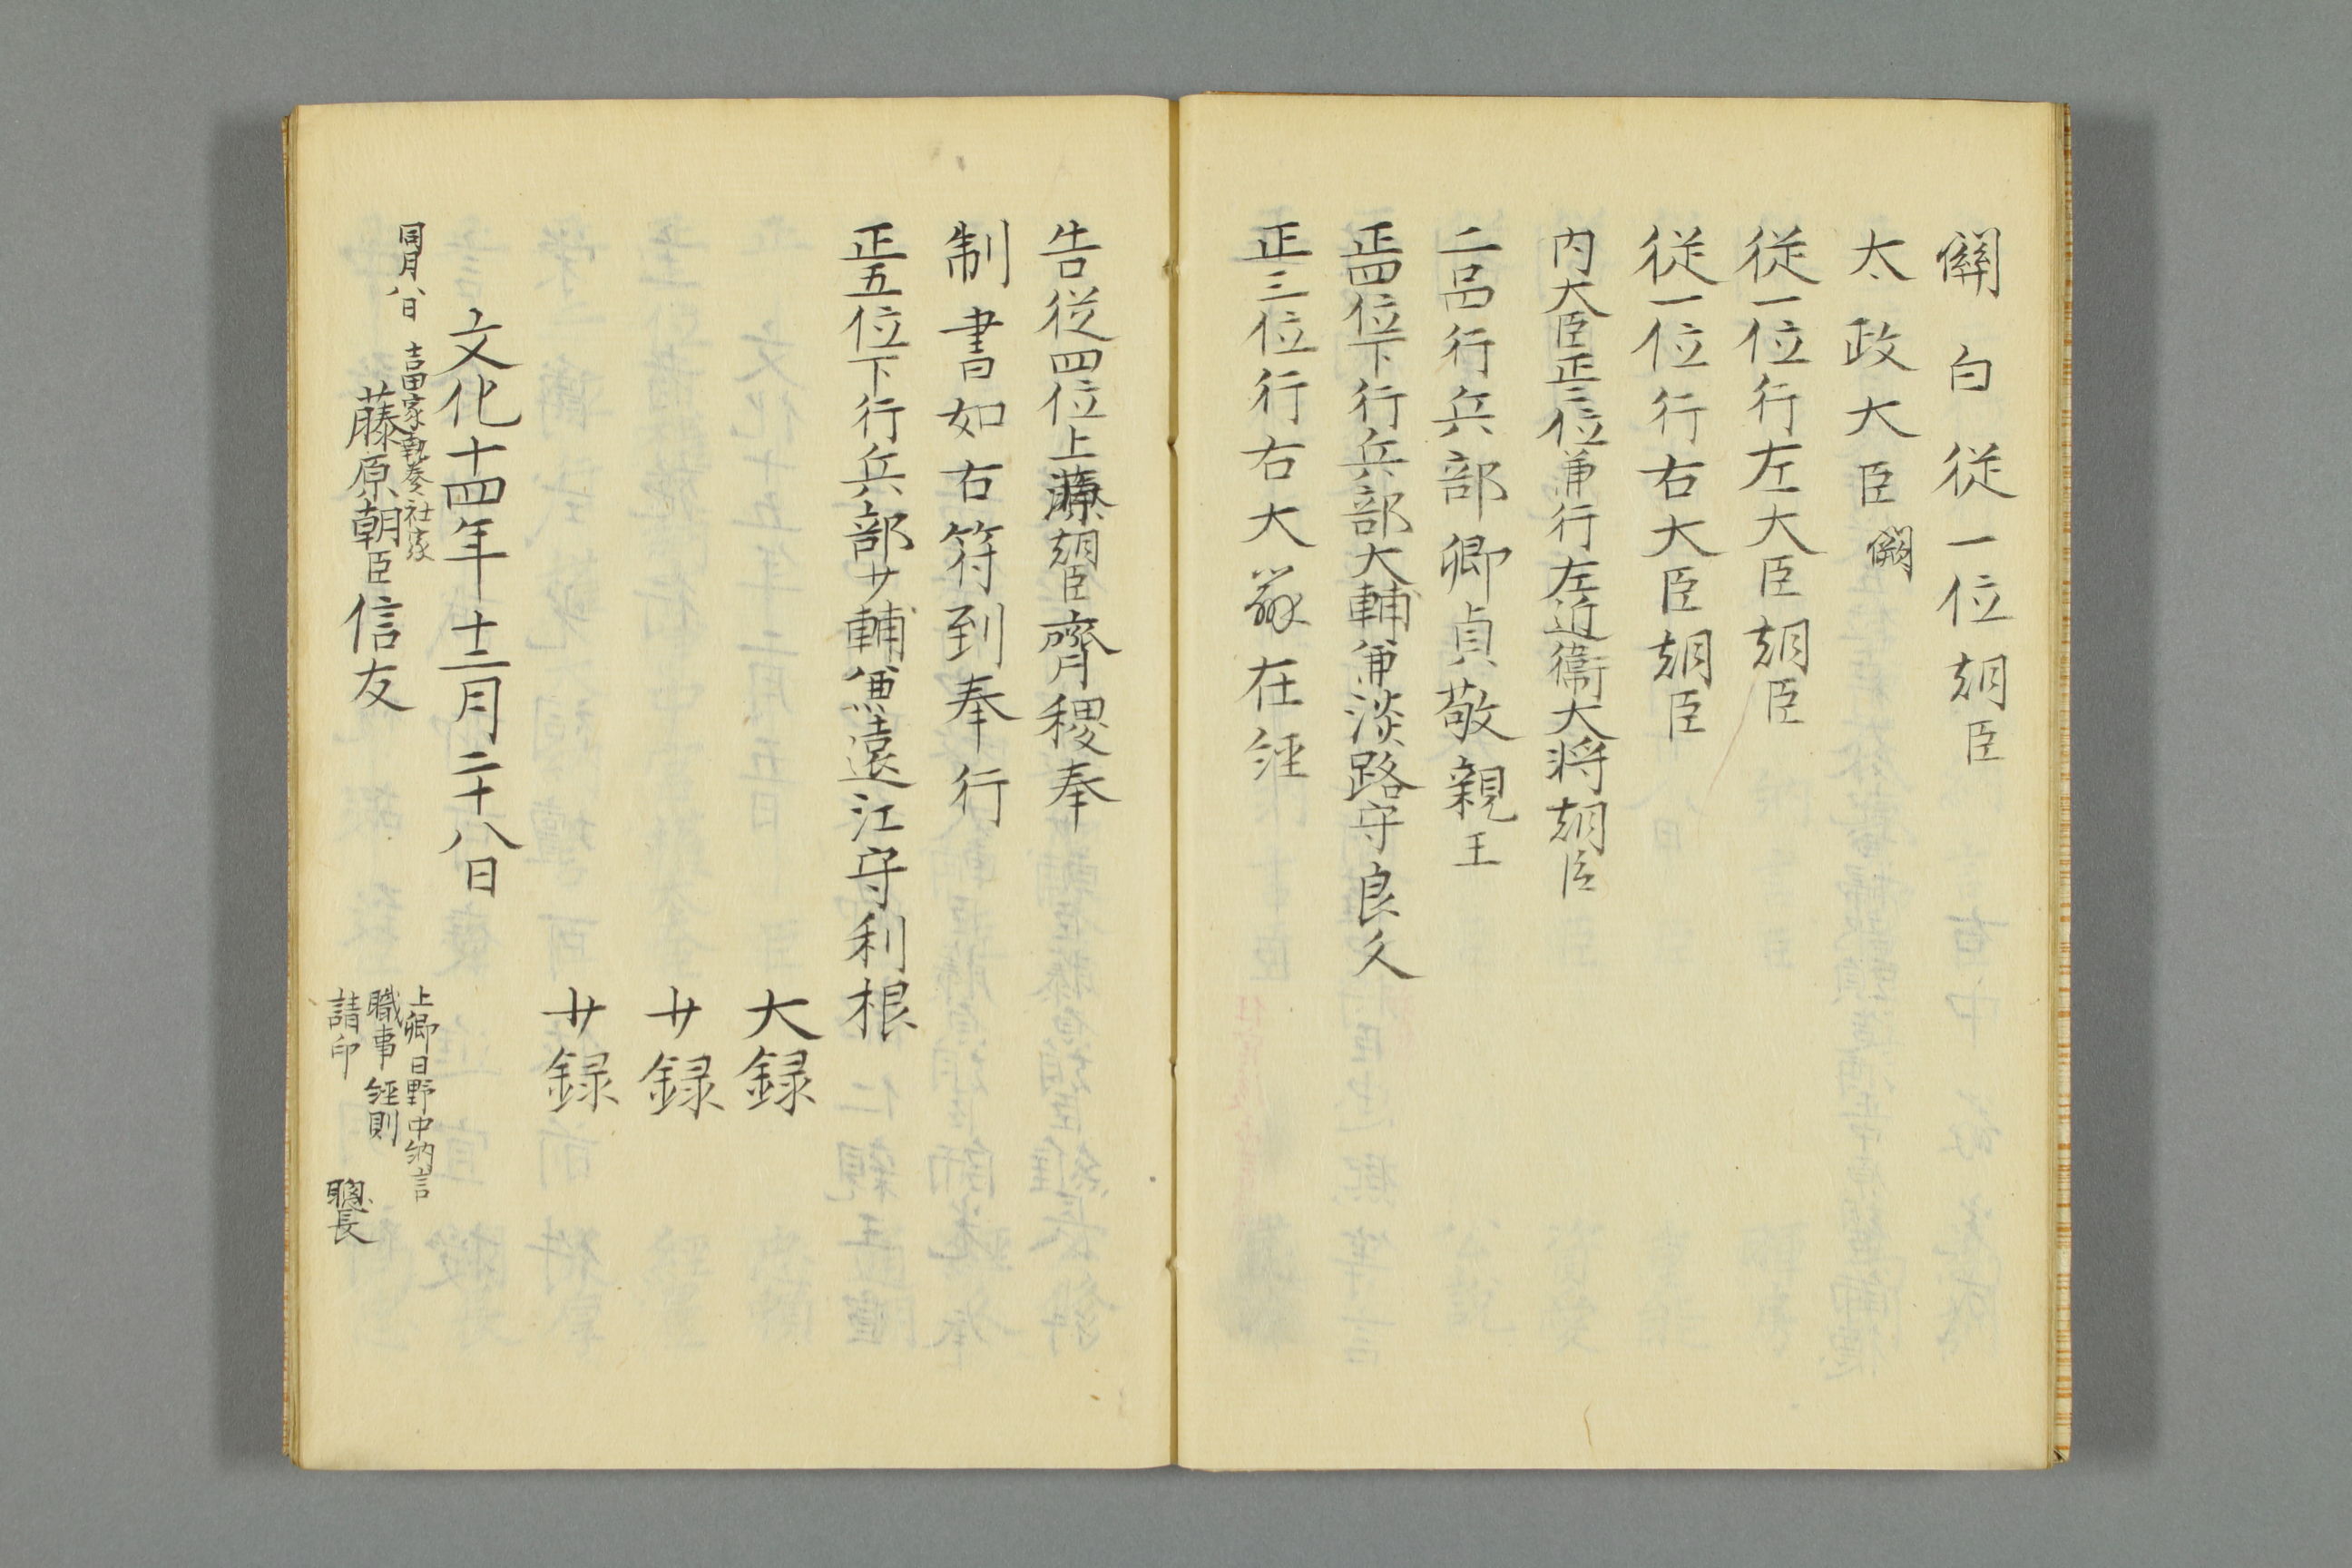 關白従一位朝臣
太政大臣 闕
従一位行左大臣朝臣
従一位行右大臣朝臣
内大臣正二位兼行左近衛大将朝臣
二品行兵部卿貞敬親王
正四位下行兵部大輔兼淡路守良久
正三位行右大弁在経
告従四位上藤朝臣齊稷奉
制書如右符到奉行
正五位下行兵部少輔兼遠江守利根
大録
少録
少録
文化十四年十二月二十八日
同月八日 吉田家執奏社家
藤原朝臣信友
上卿日野中納言
職事経則
請印 聰長